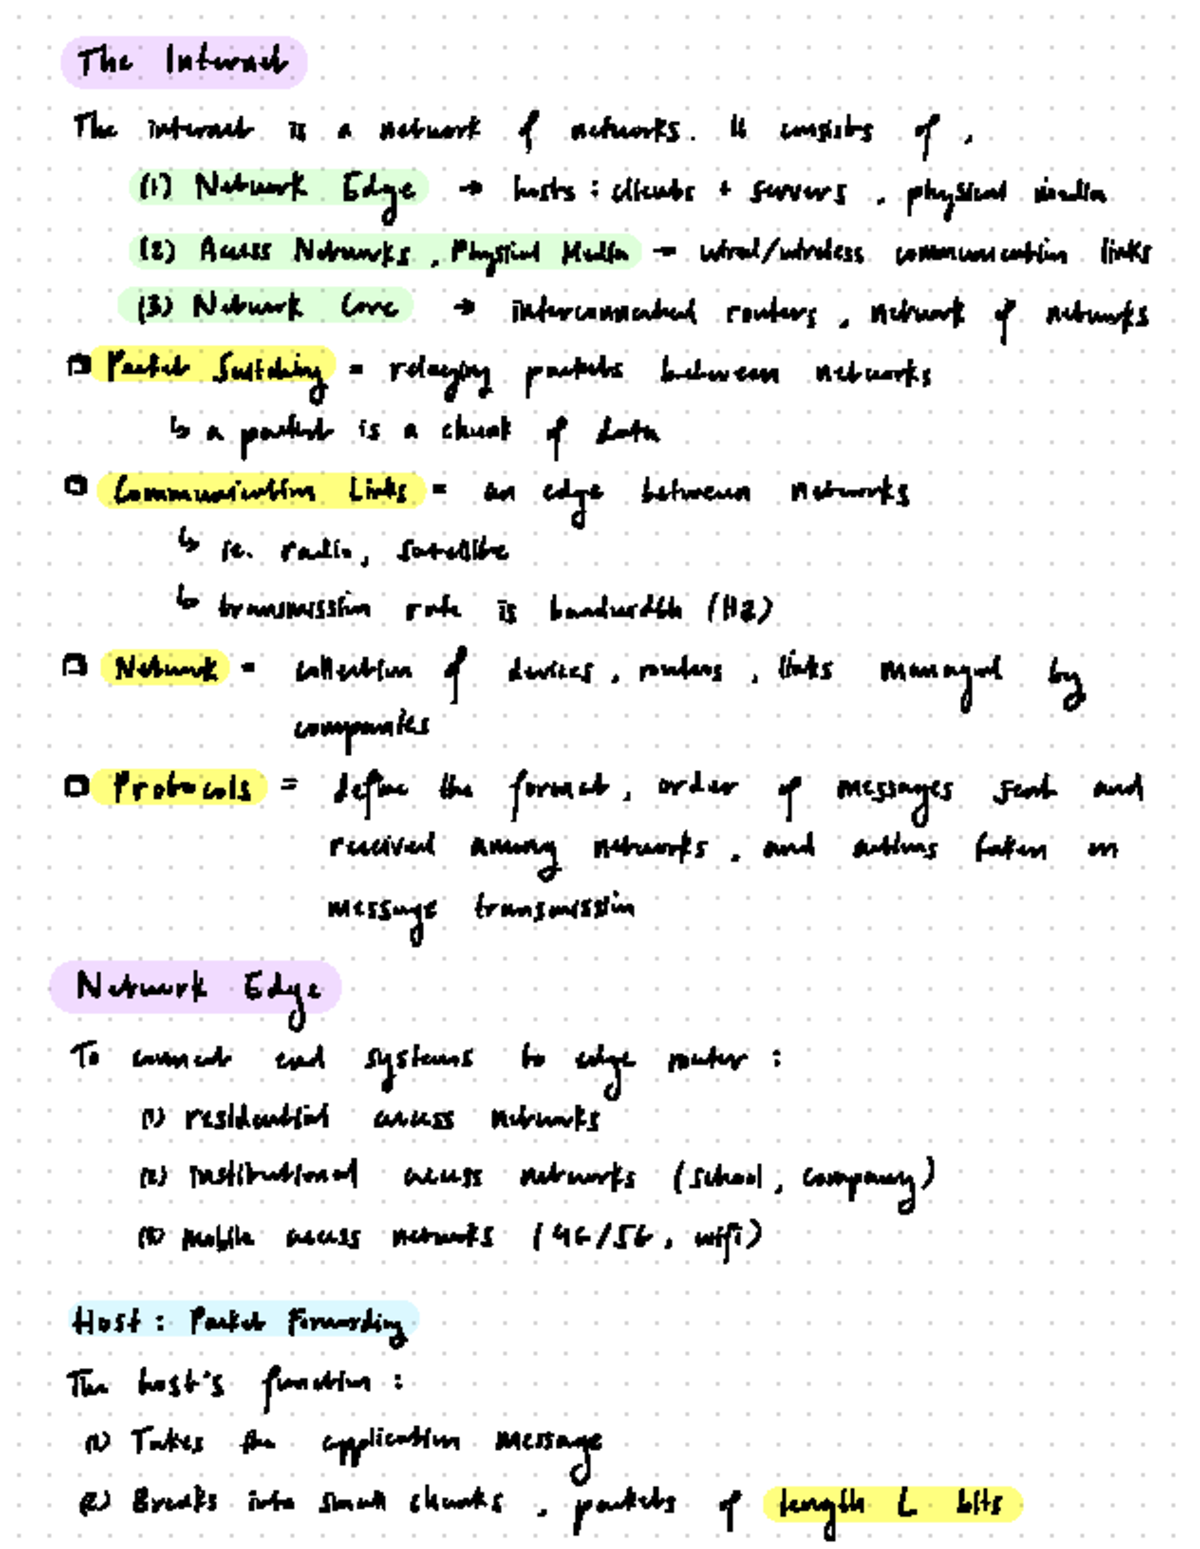 The Internet
The internet is a network of networks. It consists of,
(1) Network Edge → hosts : clients + servers, physical media
(2) Access Networks, Physical Media → wired/wireless communication links
(3) Network Core → interconnected routers, network of networks
Packet Switching = relaying packets between networks
↳ a packet is a chunk of data
Communication Links = an edge between networks
↳ ie. radio, satellite
↳ transmission rate is bandwidth (Hz)
Network = collection of devices, routers, links managed by
companies
Protocols = define the format, order of messages sent and
received among networks, and actions taken on
message transmission
Network Edge
To connect end systems to edge router :
(1) residential access networks
(2) institutional access networks (school, company)
(3) mobile access networks (4G/5G, wifi)
Host : Packet Forwarding
The host's function :
(1) Takes the application message
(2) Breaks into small chunks, packets of length L bits